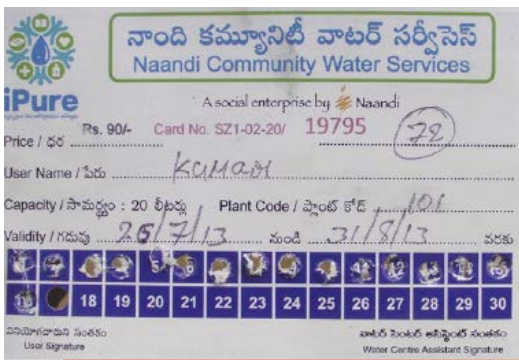 నాంది కమ్యూనిటీ వాటర్ సర్వీసెస్
Naandi Community Water Services
iPure
A social enterprise by Naandi
Price / ధర Rs. 90/- Card No. SZ1-02-20/ 19795 72
User Name / పేరు Kumari
Capacity / సామర్థ్యం : 20 లీటర్లు Plant Code / ప్లాంట్ కోడ్ 101
Validity / గడువు 26/7/13 నుండి 31/8/13 వరకు
18 19 20 21 22 23 24 25 26 27 28 29 30
వినియోగదారుని సంతకం వాటర్ సెంటర్ అసిస్టెంట్ సంతకం
User Signature Water Centre Assistant Signature